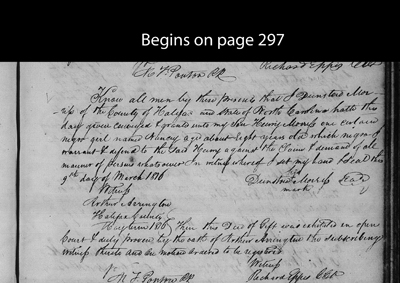 Begins on page 297
Richard Eppes Clk
M. F. Ponton PR
Know all men by these presents that I Dunsford Mor-
-ris of the County of Halifax and State of North Carolina hath this
day given executed & granted unto my Son Henry Morris one certain
negro girl named Nancy age about eight years old which negro I
warrant & defend to the said Henry against the claim & demand of all
manner of persons whatsoever In witness whereof I set my hand & Seal this
9th day of March 186
Witness
Dunsford Morris Seal
mark
Arthur Arrington
Halifax County
May term 186 Then this Deed of Gift was exhibited in open
Court & duly proven by the oath of Arthur Arrington the subscribing
witness thereto and on motion ordered to be registered
Witness
M. F. Ponton PR
Richard Eppes Clk